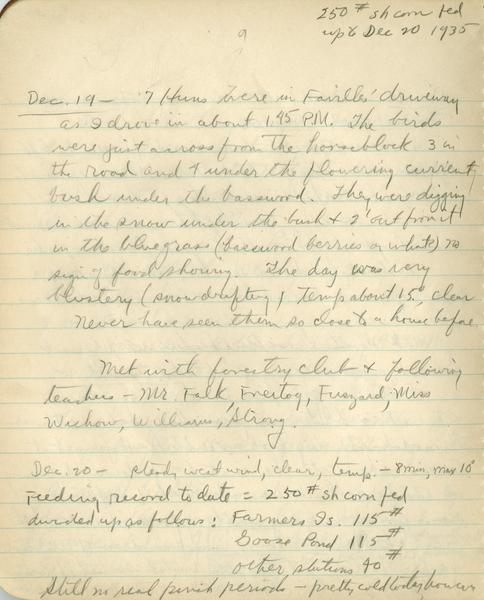 250 # sh corn fed
up to Dec 20 1935
9
Dec. 19 - 7 Huns were in Fairlles' driveway
as I drove in about 1.45 P.M. The birds
were just across from the horseblock 3 in
the road and 4 under the flowering current
bush under the basswood. They were digging
in the snow under the bush & 2' out from it
in the bluegrass (basswood berries or what?) no
sign of food showing. The day was very
blustery (snow drifting) temp about 15°, clear
Never have seen them so close to a house before
Met with forestry club & following
teachers - Mr. Falk, Freitag, Fuszard, Miss
Wichow, Williams, Strong.
Dec. 20 - steady west wind, clear, temp - 8 min, max 10°
Feeding record to date = 250 # sh corn fed
divided up as follows: Farmers Is. 115 #
Goose Pond 115 #
other stations 40 #
Still no real pinch periods - pretty cold today however